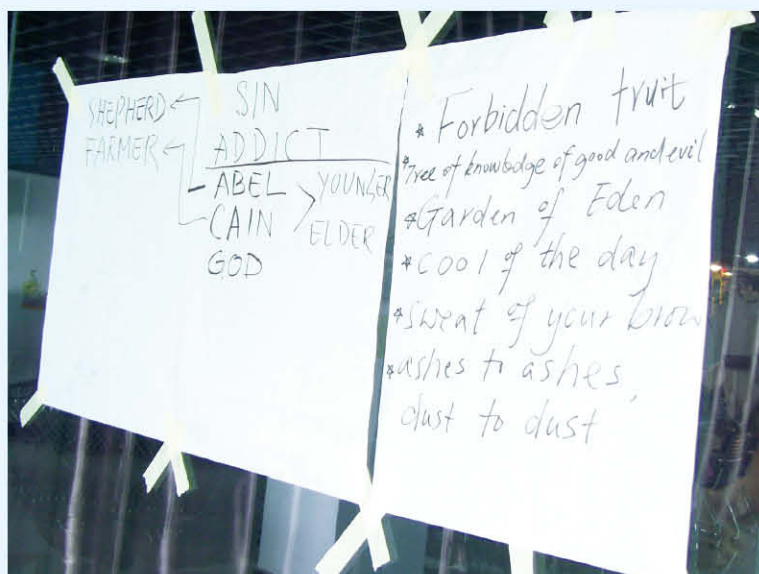 SIN
SHEPHERD
FARMER
ADDICT
ABEL YOUNGER
CAIN ELDER
GOD
* Forbidden fruit
* Tree of knowledge of good and evil
* Garden of Eden
* cool of the day
* sweat of your brow
* ashes to ashes,
dust to dust